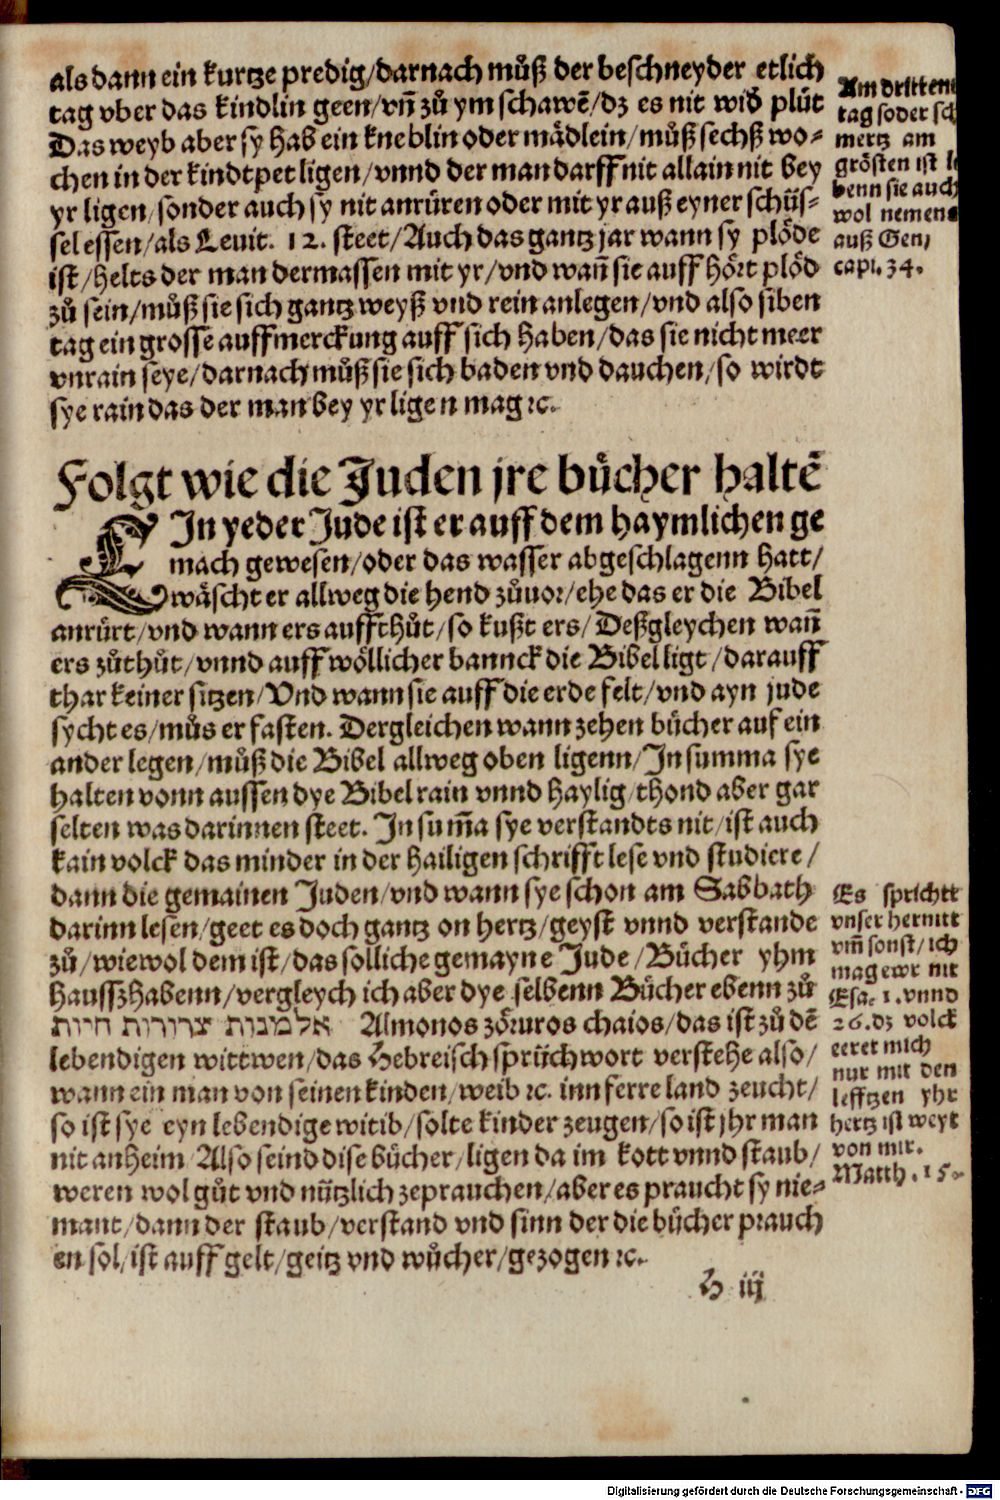 als dann ein kurtze predig/darnach můß der beschneyder etlich
tag vber das kindlin geen/vñ zů ym schawē/dz es nit wid̕ plůt
Das weyb aber sy hab ein kneblin oder mädlein/můß sechß wo-
chen in der kindtpet ligen/vnnd der man darff nit allain nit bey
yr ligen/sonder auch sy nit anrüren oder mit yr auß eyner schüs-
sel essen/als Leuit. 12. steet/Auch das gantz jar wann sy plöde
ist/helts der man dermassen mit yr/vnd wañ sie auff hört plöd
zů sein/můß sie sich gantz weyß vnd rein anlegen/vnd also siben
tag ein grosse auffmerckung auff sich haben/das sie nicht meer
vnrain seye/darnach můß sie sich baden vnd dauchen/so wirdt
sye rain das der man bey yr ligen mag ꝛc.
Am dritten
tag so der sch
mertz am
grösten ist
benn sie auch
wol nemen
auß Gen,
capi. 34.
Folgt wie die Juden jre bůcher haltē
EIn yeder Jude ist er auff dem haymlichen ge
mach gewesen/oder das wasser abgeschlagenn hatt/
wäscht er allweg die hend zůuor/ehe das er die Bibel
anrürt/vnd wann ers auffthůt/so kußt ers/Deßgleychen wañ
ers zůthůt/vnnd auff wöllicher bannck die Bibel ligt/darauff
thar keiner sitzen/Vnd wann sie auff die erde felt/vnd ayn jude
sycht es/můs er fasten. Dergleichen wann zehen bůcher auf ein
ander legen/můß die Bibel allweg oben ligenn/In summa sye
halten vonn aussen dye Bibel rain vnnd haylig/thond aber gar
selten was darinnen steet. In sum̄a sye verstandts nit/ist auch
kain volck das minder in der hailigen schrifft lese vnd studiere/
dann die gemainen Juden/vnd wann sye schon am Sabbath
darinn lesen/geet es doch gantz on hertz/geyst vnnd verstande
zů/wiewol dem ist/das solliche gemayne Jude/Bücher yhm
haussz habenn/vergleych ich aber dye selbenn Bücher ebenn zů
אלמנות צרורות חיות Almonos zöruros chaios/das ist zů dē
lebendigen wittwen/das Hebreisch sprüchwort verstehe also/
wann ein man von seinen kinden/weib ꝛc. inn ferre land zeucht/
so ist sye eyn lebendige witib/solte kinder zeugen/so ist jhr man
nit anheim Also seind dise bücher/ligen da im kott vnnd staub/
weren wol gůt vnd nützlich zeprauchen/aber es praucht sy nie-
mant/dann der staub/verstand vnd sinn der die bücher prauch
en sol/ist auff gelt/geitz vnd wůcher/gezogen ꝛc.
Es sprichtt
vnser hernitt
vm̄ sonst/ich
mag ewr nit
Esa. 1. vnnd
26. dz volck
eeret mich
nur mit den
lefftzen yhr
hertz ist weyt
von mir.
Matth. 15.
H iij
Digitalisierung gefördert durch die Deutsche Forschungsgemeinschaft - DFG